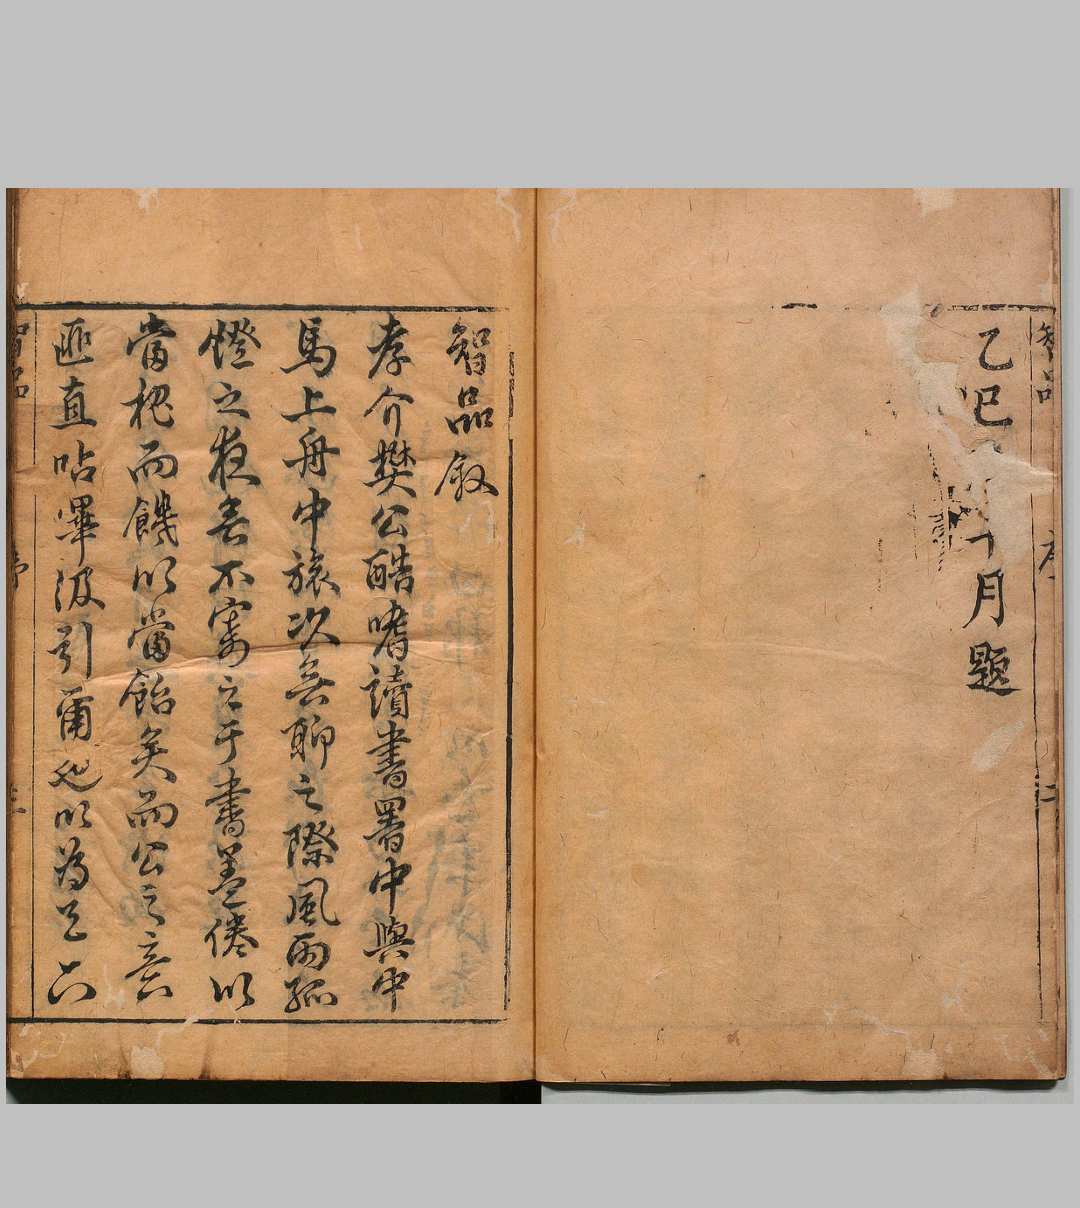 乙巳 月題
智品敘
孝介樊公酷嗜讀書署中輿中
馬上舟中旅次無聊之際風雨孤
燈之夜無不寄之于書蓋倦以
當枕而饑以當飴矣而公之意
匪直呫嗶汲引爾也以為
智品